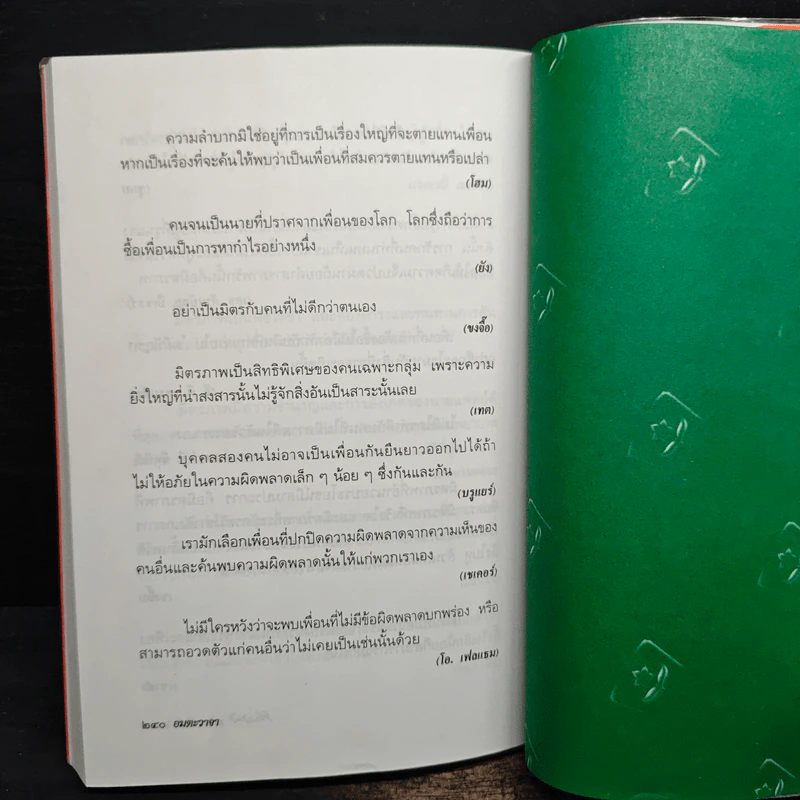 ความลำบากมิใช่อยู่ที่การเป็นเรื่องใหญ่ที่จะตายแทนเพื่อน
หากเป็นเรื่องที่จะค้นให้พบว่าเป็นเพื่อนที่สมควรตายแทนหรือเปล่า
(โฮม)
คนจนเป็นนายที่ปราศจากเพื่อนของโลก โลกซึ่งถือว่าการ
ซื้อเพื่อนเป็นการหากำไรอย่างหนึ่ง
(ยัง)
อย่าเป็นมิตรกับคนที่ไม่ดีกว่าตนเอง
(ขงจื๊อ)
มิตรภาพเป็นสิทธิพิเศษของคนเฉพาะกลุ่ม เพราะความ
ยิ่งใหญ่ที่น่าสงสารนั้นไม่รู้จักสิ่งอันเป็นสาระนั้นเลย
(เทต)
บุคคลสองคนไม่อาจเป็นเพื่อนกันยืนยาวออกไปได้ถ้า
ไม่ให้อภัยในความผิดพลาดเล็ก ๆ น้อย ๆ ซึ่งกันและกัน
(บรูแยร์)
เรามักเลือกเพื่อนที่ปกปิดความผิดพลาดจากความเห็นของ
คนอื่นและค้นพบความผิดพลาดนั้นให้แก่พวกเราเอง
(เชเคอร์)
ไม่มีใครหวังว่าจะพบเพื่อนที่ไม่มีข้อผิดพลาดบกพร่อง หรือ
สามารถอวดตัวแก่คนอื่นว่าไม่เคยเป็นเช่นนั้นด้วย
(โอ. เฟลแธม)
๒๔๐ อมตะวาจา